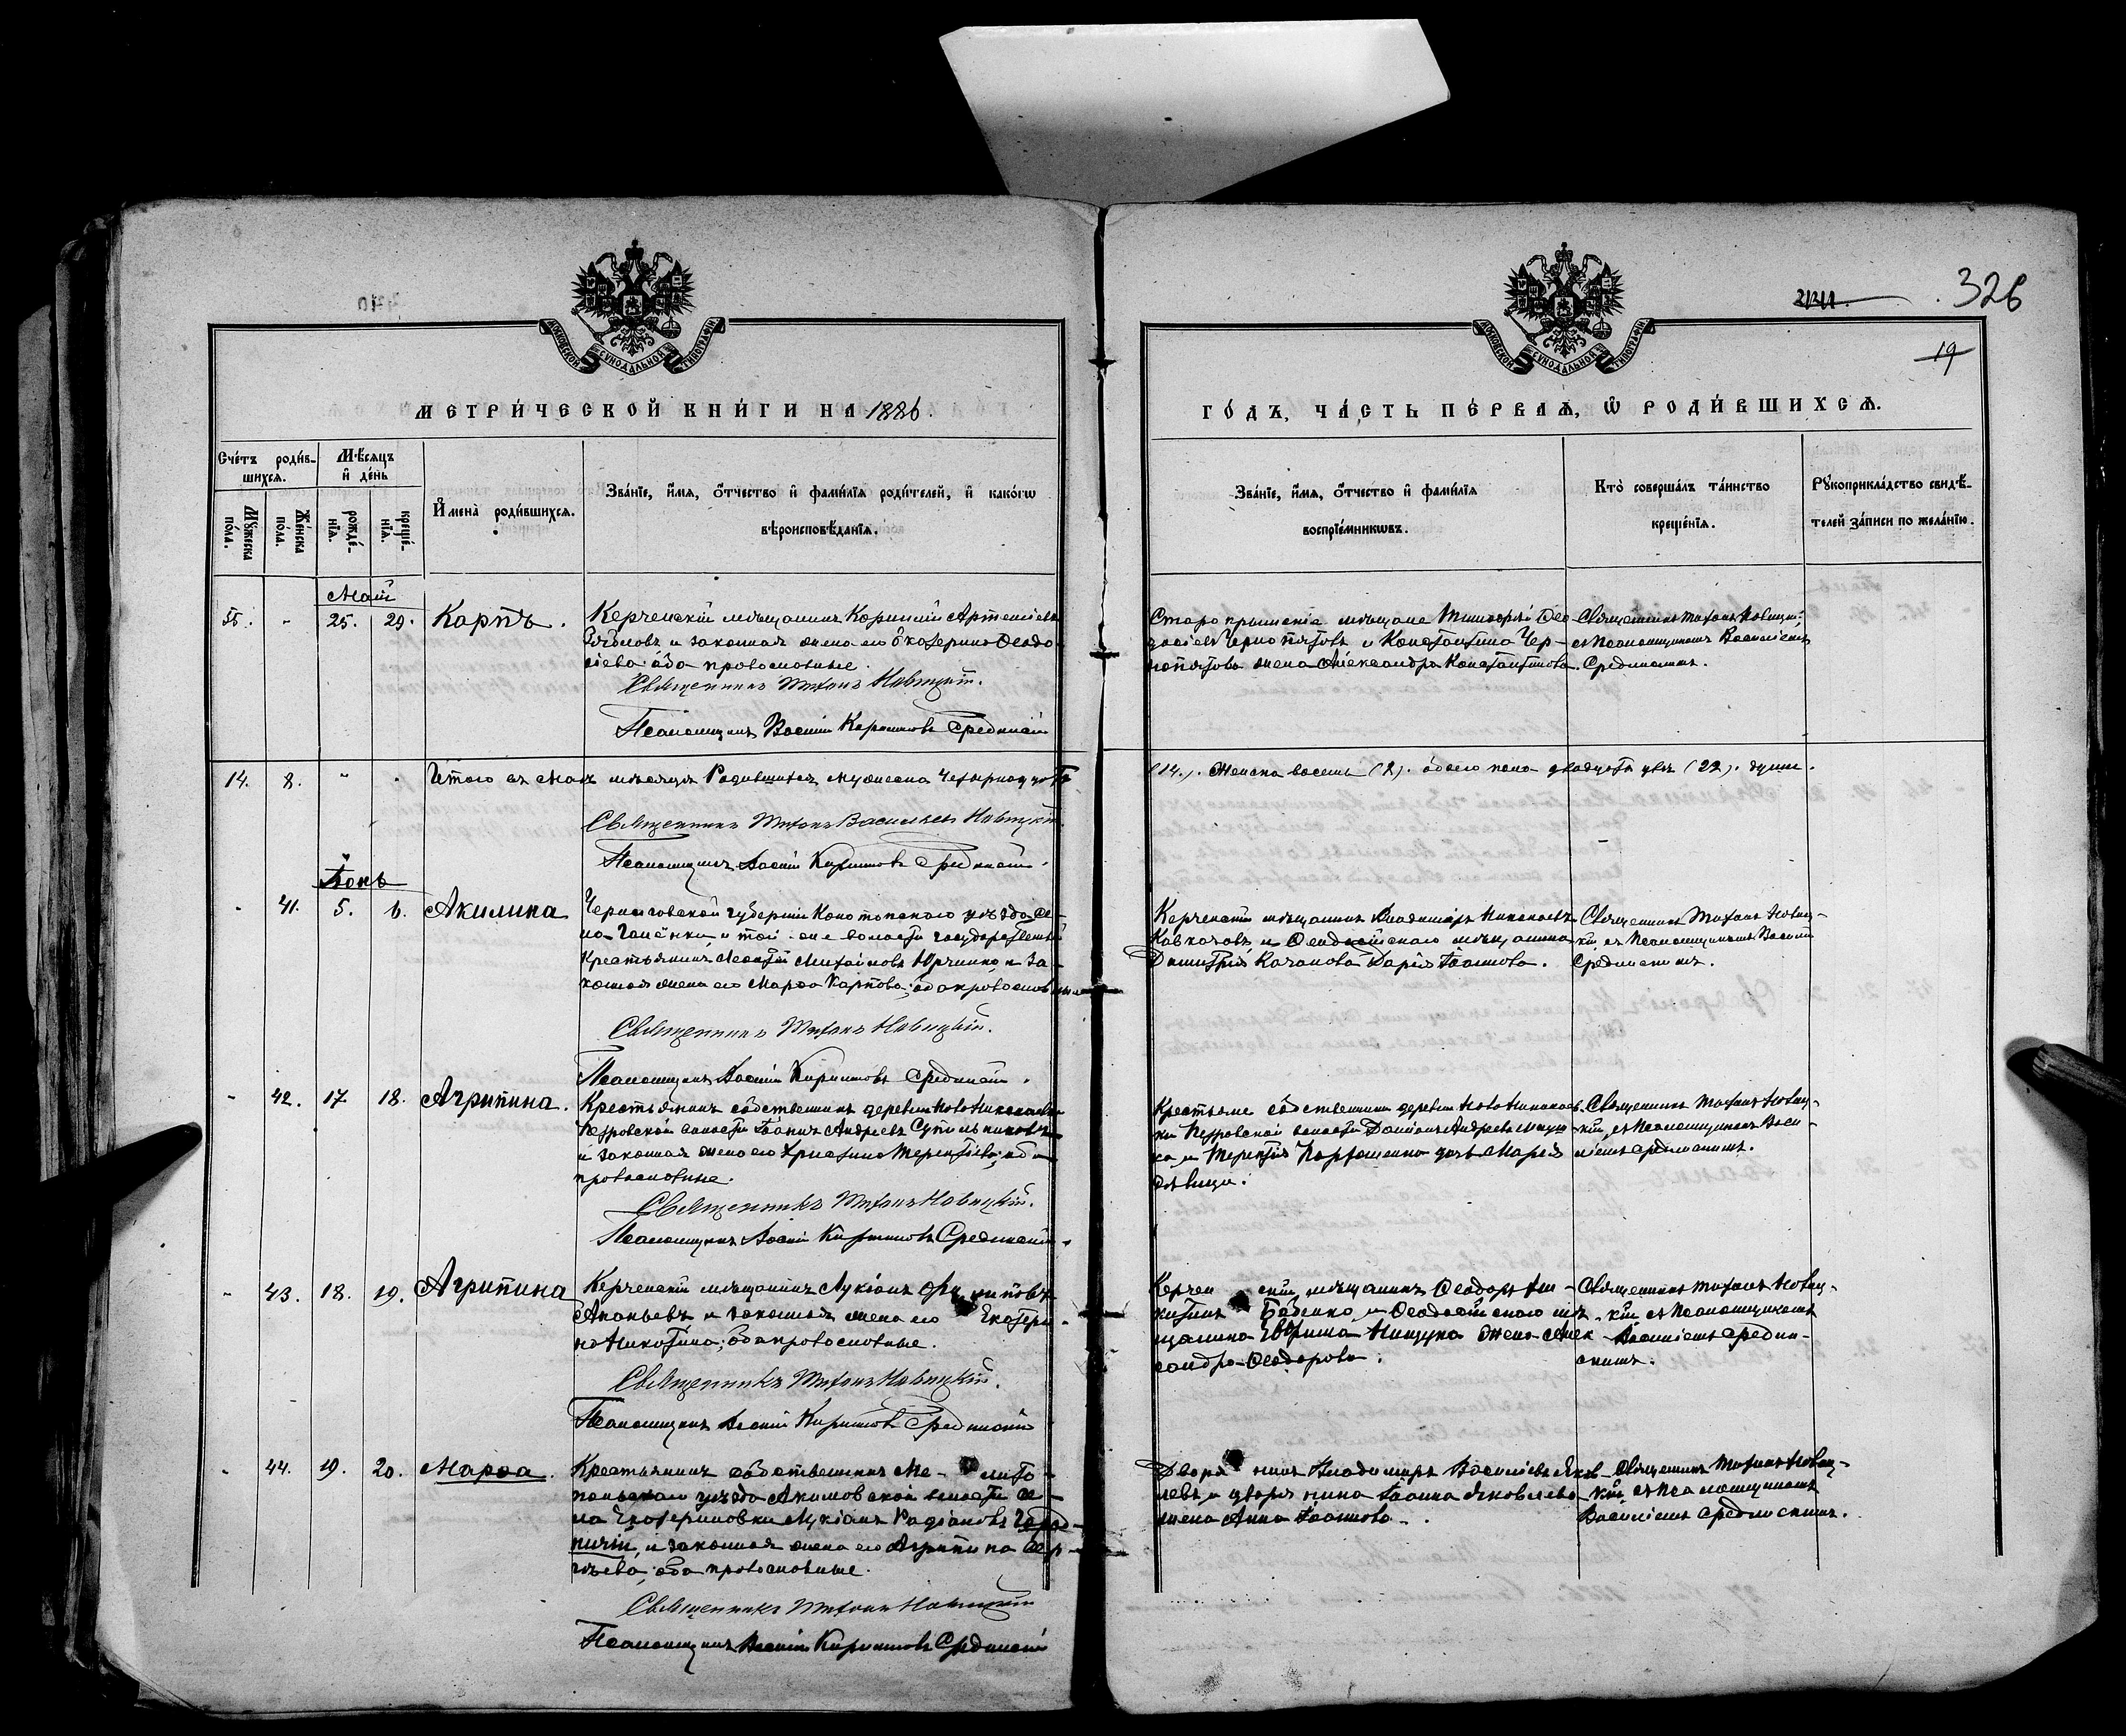 326
19
МОСКОВСКОЙ СУНОДАЛЬНОЙ ТИПОГРАФІИ
МОСКОВСКОЙ СУНОДАЛЬНОЙ ТИПОГРАФІИ
МЕТРИ́ЧЕСКОЙ КНИ́ГИ НА 1886.
ГО́ДЪ, ЧА́СТЬ ПЕ́РВАѦ, Ѡ҆ РОДИ́ВШИХСѦ.
Сче́тъ роди́в-
шихсѧ.
Мѣ́сѧцъ
и҆ де́нь
Мꙋ́жеска по́ла.
Же́нска по́ла.
рожде́-нїѧ.
креще́-нїѧ.
И҆мена̀ роди́вшихсѧ.
Зва́нїе, и҆́мѧ, ѻ҆́тчество и҆ фами́лїѧ роди́телей, и҆ како́гѡ
вѣроисповѣ́данїѧ.
Зва́нїе, и҆́мѧ, ѻ҆́тчество и҆ фами́лїѧ
воспрїе́мникѡвъ.
Кто̀ соверша́лъ та́инство
креще́нїѧ.
Рꙋкоприкла́дство свидѣ́-
телей за́писи по жела́нїю.
Май
55. - 25. 29. Карпъ.
Керченскій мѣщанинъ Артеміевъ
и законная жена его Екатерина Ѳеодо-
сіева оба православные.
Священникъ Тихонъ Новицкій.
Псаломщикъ Василій Кирилловъ Срединскій
мѣщане Тимоѳей Ѳео
и Константина Чер-
жена Александра Константинова.
Священникъ Тихонъ Новицкій
съ Псаломщикомъ Василіемъ
Срединскимъ.
14. 8. Итого въ Маѣ мѣсяцѣ Родившихся мужеска четырнадцать
(14). Женска восемь (8). обоего пола двадцать два (22). души.
Священникъ Тихонъ Васильевъ Новицкій
Псаломщикъ Василій Кирилловъ Срединскій.
Іюнь
- 41. 5. 6. Акилина
Черниговской губерніи Конотопскаго уѣзда се-
ла и той-же волости государственный
Крестьянинъ Леонтій Михайловъ Юрченко и за-
конная жена его Марѳа Карпова; оба православные
Священникъ Тихонъ Новицкій.
Псаломщикъ Василій Кирилловъ Срединскій.
Керченскій мѣщанинъ Владиміръ Николаевъ
и Ѳеодосійскаго мѣщанина
Димитрія Качанова Дарія Іоаннова.
Священникъ Тихонъ Новиц-
кій съ Псаломщикомъ Василі
Срединскимъ.
- 42. 17 18. Агрипина.
Крестьянинъ собственникъ деревни Ново Николаевки
Петровской волости Іоаннъ Андреевъ
и законная жена его Христина Терентіева; оба
православные.
Священникъ Тихонъ Новицкій.
Псаломщикъ Василій Кирилловъ Срединскій.
Крестьяне собственники деревни Ново Николаев-
ки Петровской волости Даміанъ Андреевъ
и Терентія Пархоменко дочь Марія
дѣвица.
Священникъ Тихонъ Новиц-
кій съ Псаломщикомъ Васи-
ліемъ Срединскимъ.
- 43. 18. 19. Агрипина
Керченскій мѣщанинъ Лукіанъ Филиповъ
Ананьевъ и законная жена его Екатери-
на Никотина; оба православные.
Священникъ Тихонъ Новицкій.
Псаломщикъ Василій Кирилловъ Срединскій
Керченскій мѣщанинъ Ѳеодоръ Ни-
китинъ Бабенко и Ѳеодосійскаго мѣ-
щанина жена Алек
сандра Ѳеодорова.
Священникъ Тихонъ Новиц-
кій съ Псаломщикомъ
Василіемъ Средин-
скимъ.
- 44. 19. 20. Марѳа.
Крестьянинъ собственникъ Ме-лито-
польскаго уѣзда Акимовской волости се-
ла Екатериновки Лукіанъ Радіоновъ
и законная жена его Агрипина Сер-
гѣева; оба православные.
Священникъ Тихонъ Новицкій
Псаломщикъ Василій Кирилловъ Срединскій
Дворянинъ Владиміръ Василіевъ Яков-
левъ и дворянина Іоанна Яковлева
жена Анна Іоаннова.
Священникъ Тихонъ Новиц-
кій съ Псаломщикомъ
Василіемъ Срединскимъ.